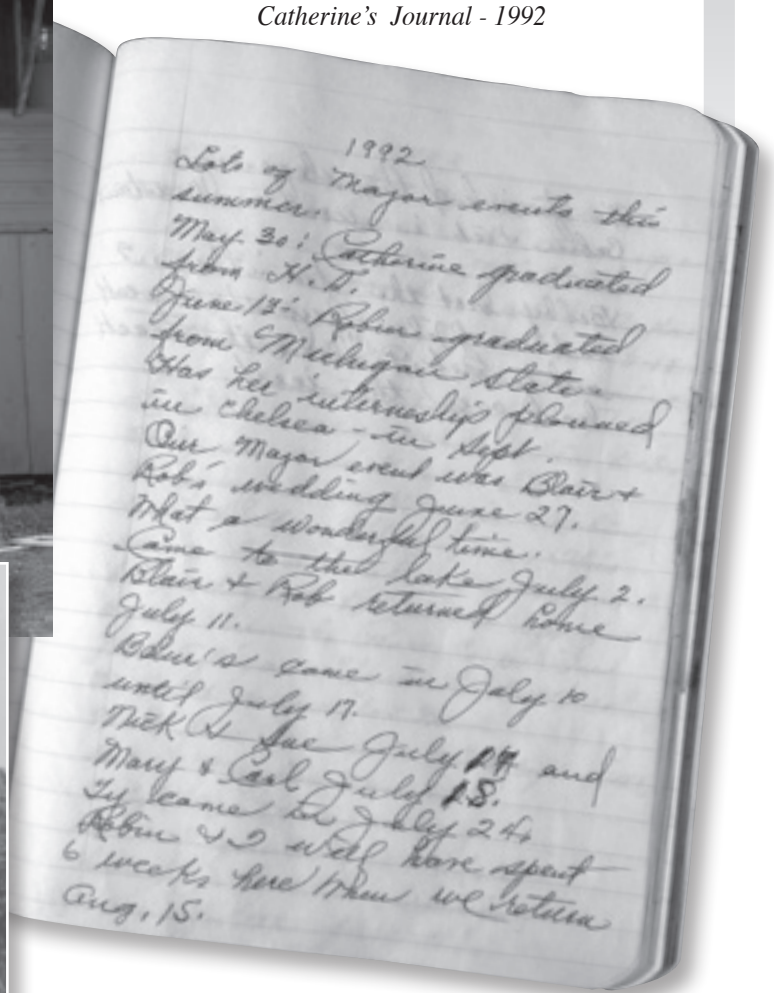 Catherine's Journal - 1992
1992
Lots of Major events this
summer.
May 30: Catherine graduated
from H.S.
June 12: Robin graduated
from Michigan State.
Has her internship planned
in Chelsea - in Sept.
Our Major event was Blair &
Rob's wedding June 27.
What a wonderful time.
Came to the lake July 2.
Blair & Rob returned home
July 11.
came in July 10
until July 17.
Nick & Sue July and
Mary & Carl July 18.
Ty came in July 24.
Robin & I will have spent
6 weeks here when we return
Aug. 15.